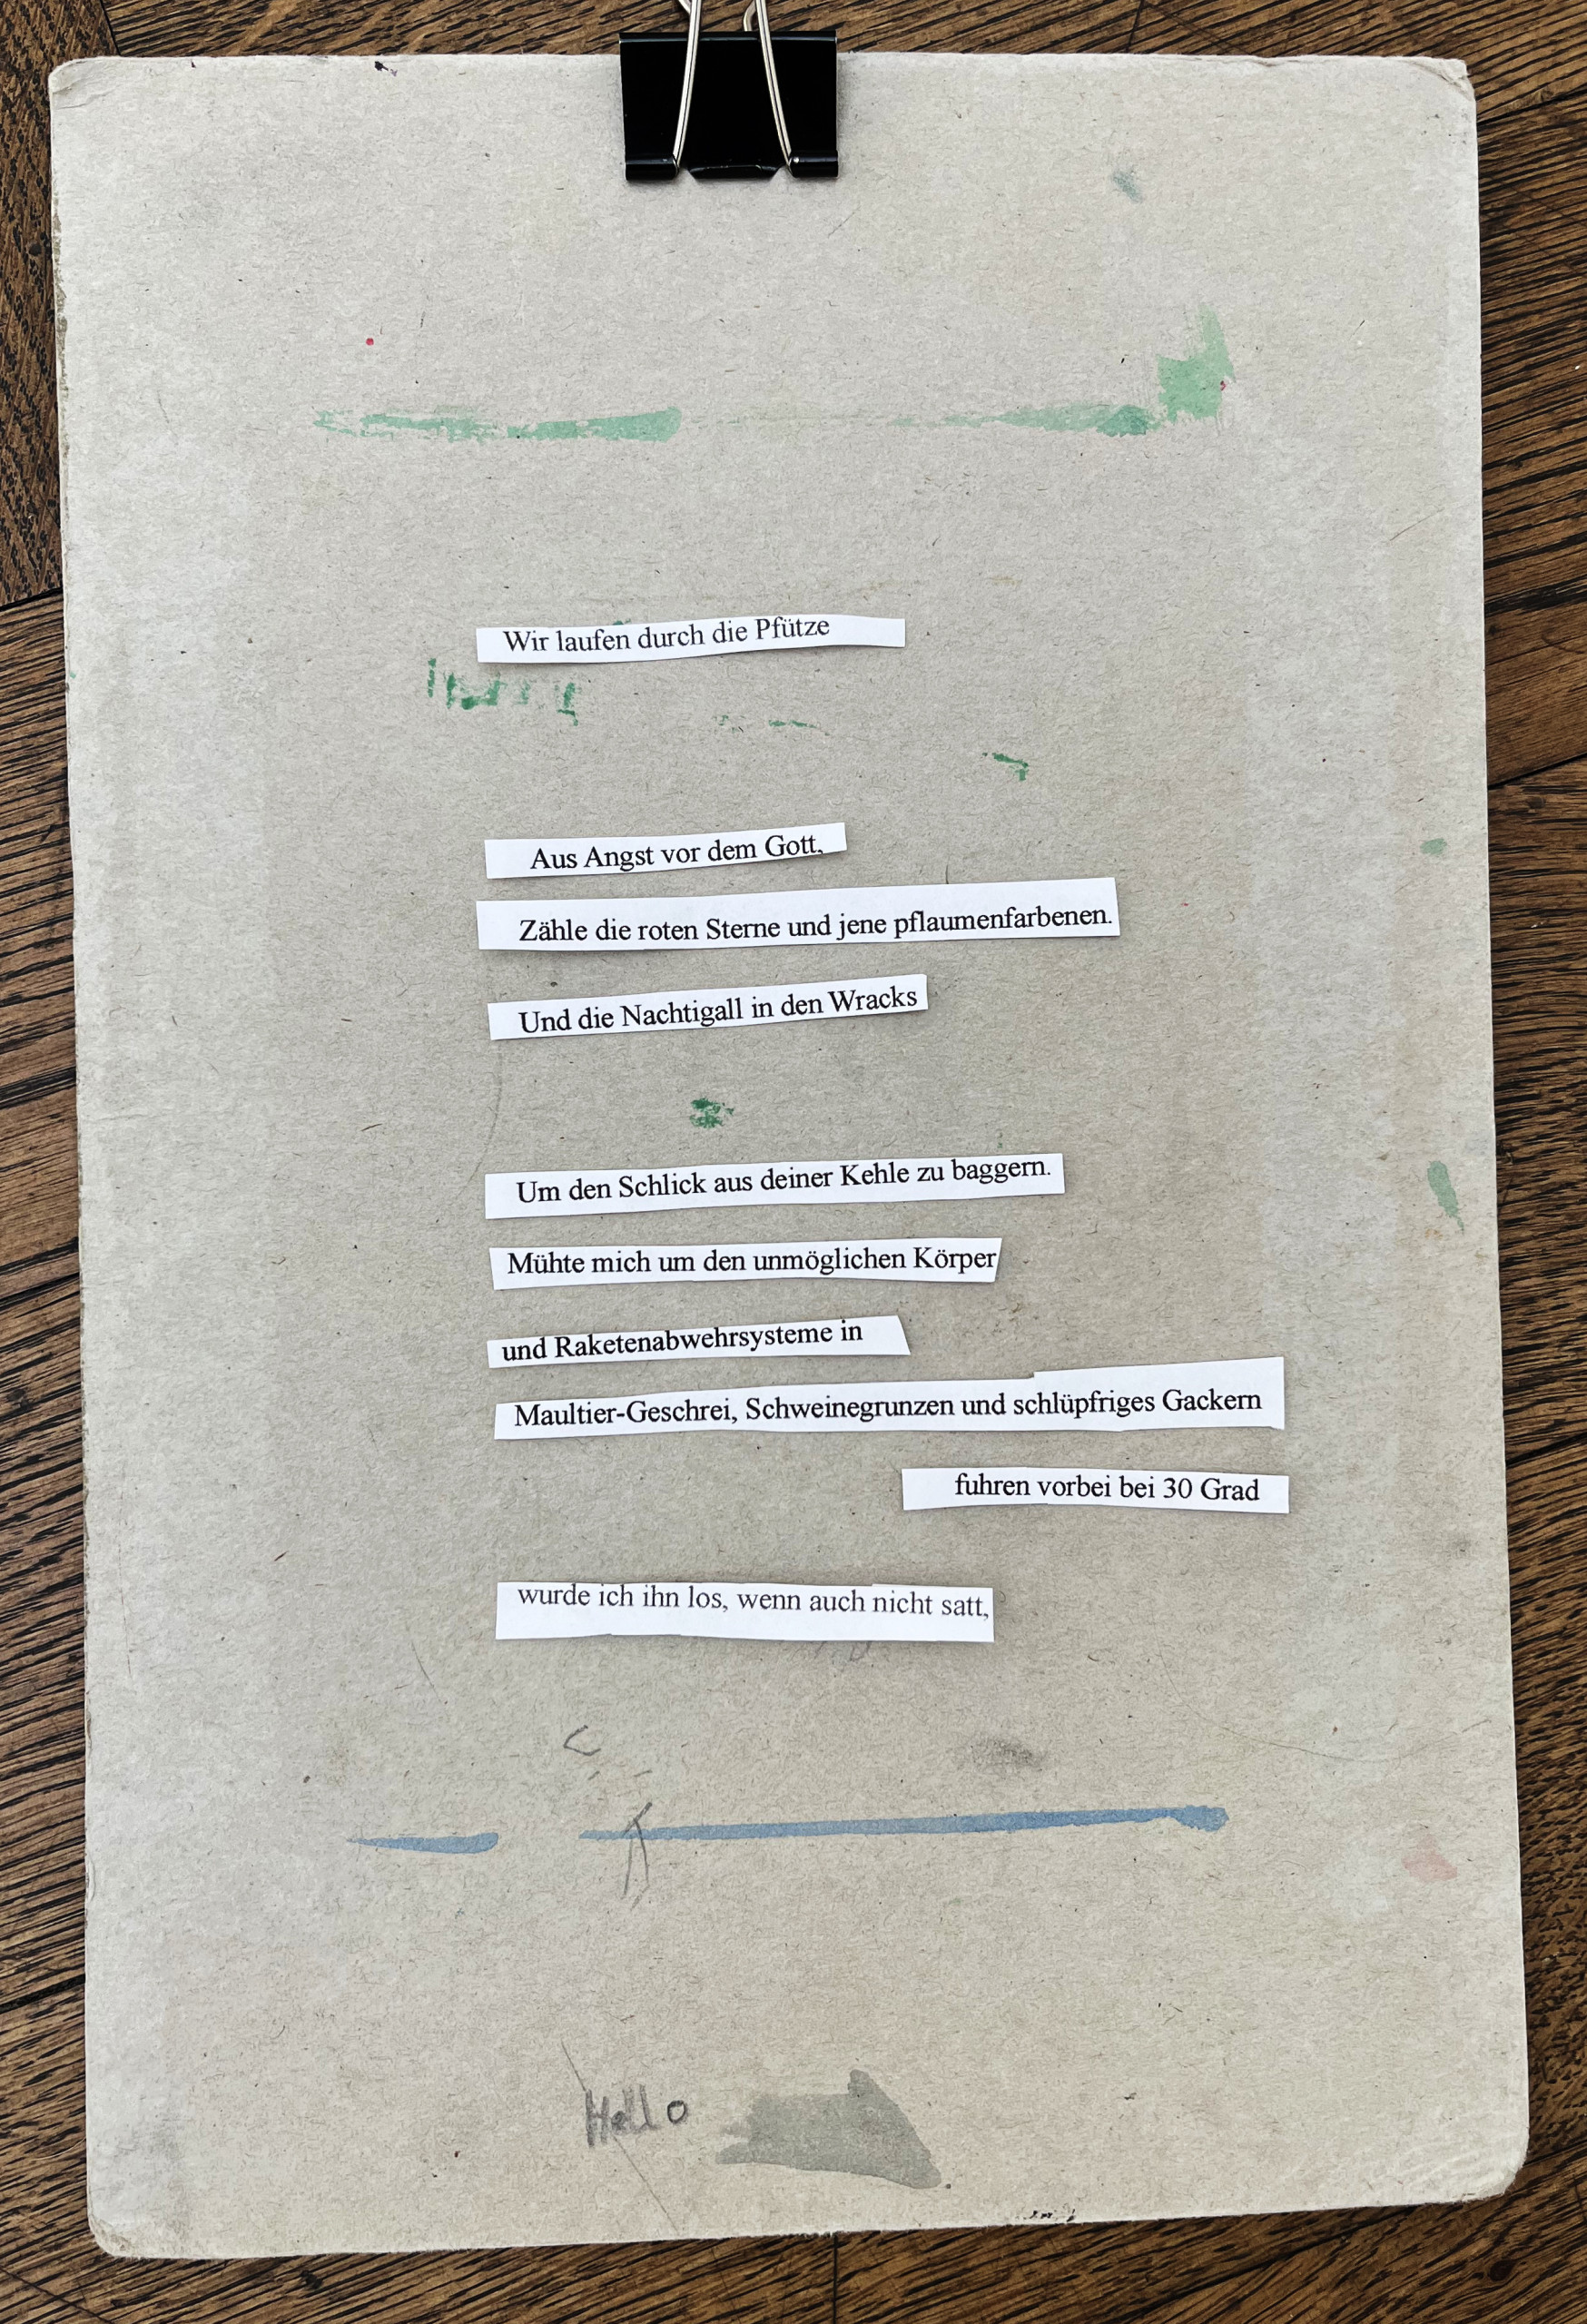 Wir laufen durch die Pfütze
Aus Angst vor dem Gott,
Zähle die roten Sterne und jene pflaumenfarbenen.
Und die Nachtigall in den Wracks
Um den Schlick aus deiner Kehle zu baggern.
Mühte mich um den unmöglichen Körper
und Raketenabwehrsysteme in
Maultier-Geschrei, Schweinegrunzen und schlüpfriges Gackern
fuhren vorbei bei 30 Grad
wurde ich ihn los, wenn auch nicht satt,
Hello